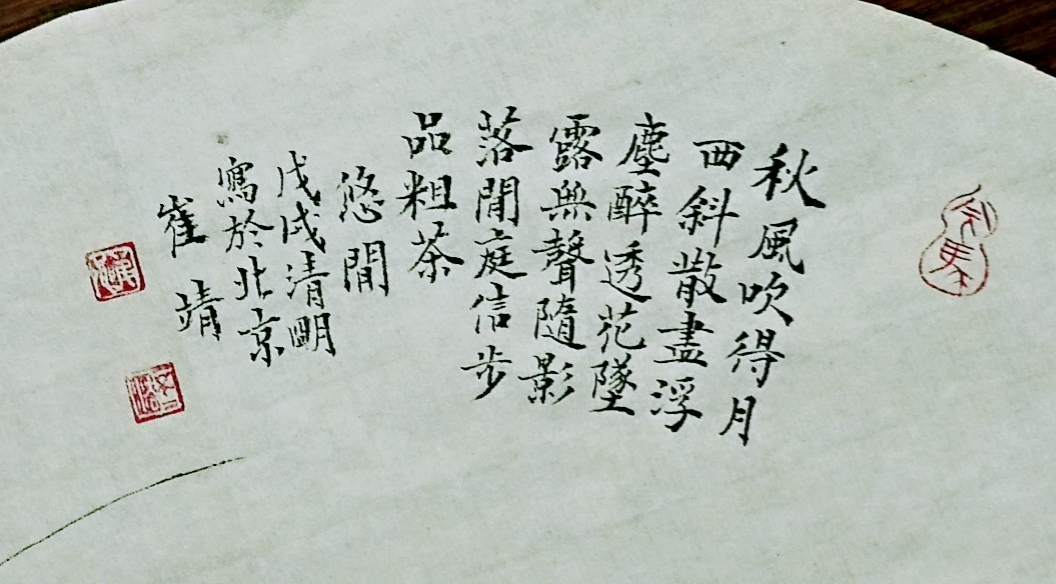 秋風吹得月
西斜散盡浮
塵醉透花墜
露無聲隨影
落閒庭信步
品粗茶
悠閒
戊戌清明
寫於北京
崔靖